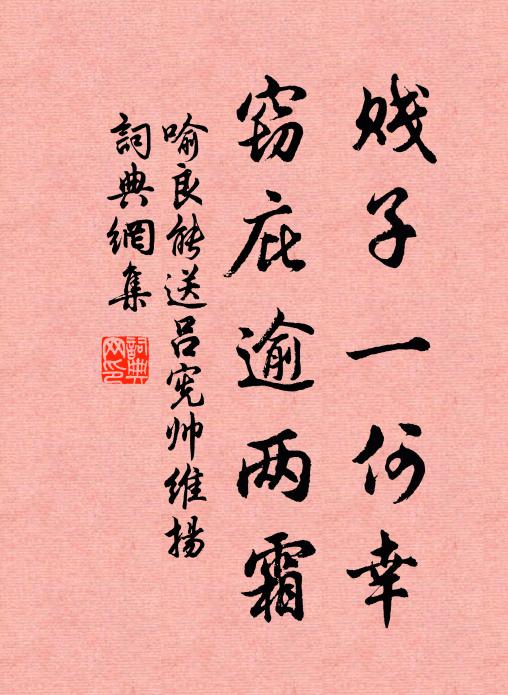 贱子一何幸
窃庇逾两霜
喻良能送吕宪帅维扬
詞典網集
詞典网印